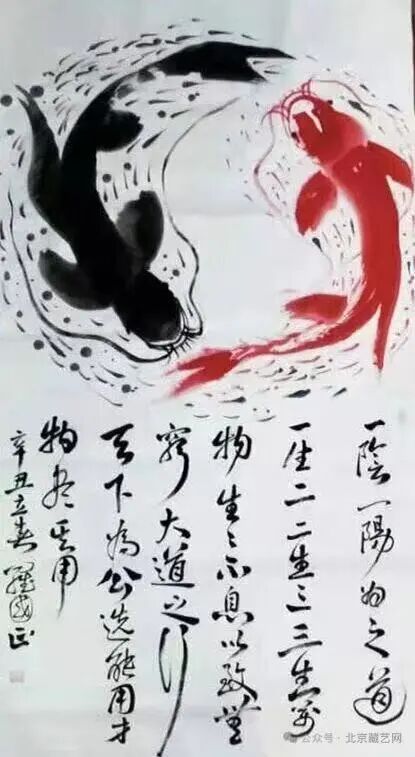 一陰一陽为之道
一生二二生三三生萬
物生生不息以致無
窮大道之行
天下为公选能用才
物尽其用
辛丑立春羅國正
公众号·北京藏艺网